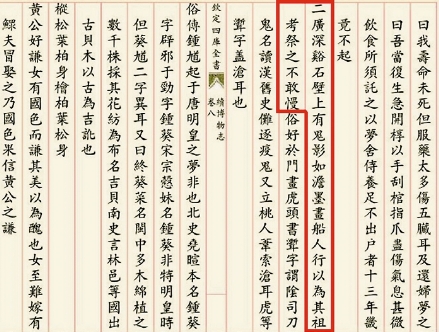 曰我壽命未死但服藥太多傷五臟耳及還婦夢之
曰吾當復生急開棺以手刮棺指爪盡傷氣息甚微
飲食所須託之以夢舍侍養足不出户者十三年畿
竟不起
二廣深谿石壁上有鬼影如澹墨畫船人行以為其祖
考祭之不敢慢俗好於門畫虎頭書聻字謂陰司刀
鬼名讀漢舊史儺逐疫鬼又立桃人葦索滄耳虎等
聻字蓋滄耳也
欽定四庫全書
續博物志
卷八
俗傳鍾馗起于唐明皇之夢非也北史堯暄本名鍾葵
字辟邪于勁字鍾葵宋宗慤妹名鍾葵非特明皇時
但葵馗二字異耳又曰終葵菜名閩中多木綿植之
數千株採其花紡為布名吉貝南史言林邑等國出
古貝木以古為吉訛也
樅松葉柏身檜柏葉松身
黄公好謙女有國色而謙其美以為醜也女至難嫁有
鰥夫冒娶之乃國色果信黄公之謙